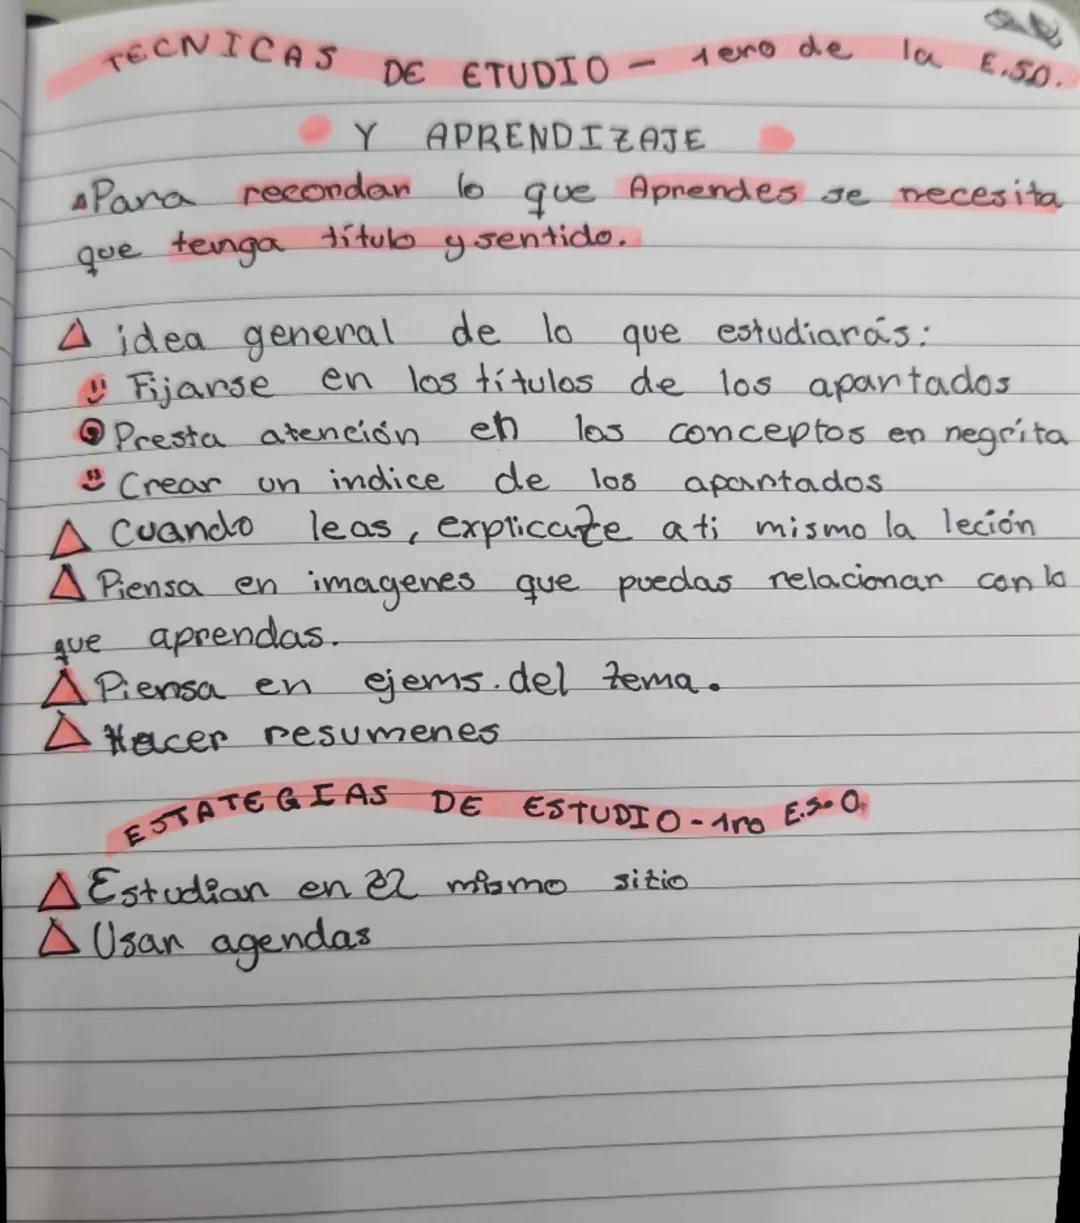 TECNICAS DE ETUDIO - 1ero de la E.SO.
Y APRENDIZAJE
Para recordar lo que Aprendes se necesita
que tenga título y sentido.
idea general de lo que estudiarás:
Fijarse en los títulos de los apartados
Presta atención en los conceptos en negrita
Crear un indice de los apartados
Cuando leas, explicate a ti mismo la leción
Piensa en imagenes que puedas relacionar con lo
que aprendas.
Piensa en ejems. del tema.
Hacer resumenes
ESTATEGIAS DE ESTUDIO - 1ro E.S.O.
Estudiar en el mismo sitio
Usar agendas